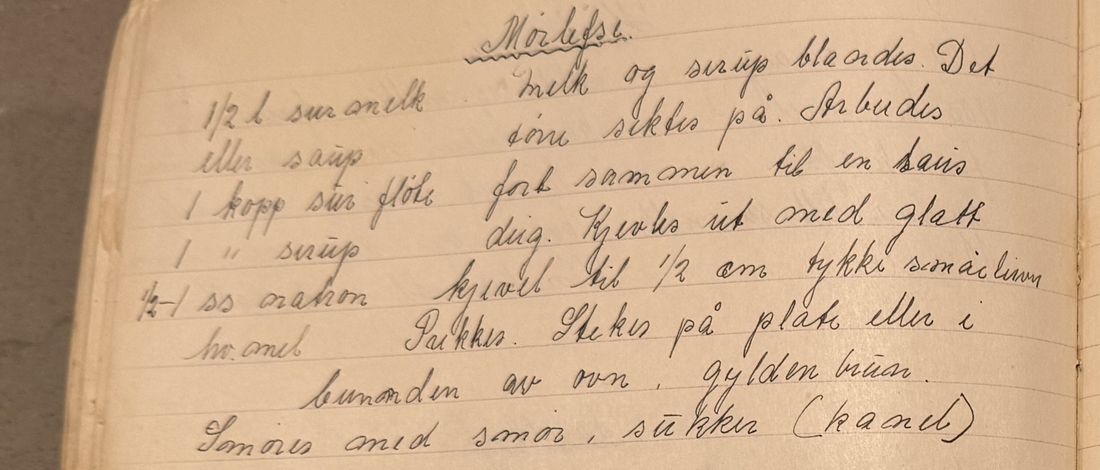 Mørlefse.
1/2 l surmelk
eller saup
1 kopp sur fløte
1 " sirup
1/2-1 ss natron
hv. mel
Melk og sirup blandes. Det
tørre siktes på. Arbeides
fort sammen til en laus
deig. Kjevles ut med glatt
kjevel til 1/2 cm tykke småleiver
Pikkes. Stekes på plate eller i
bunnden av ovn, gylden brun.
Smøres med smør, sukker (kanel)